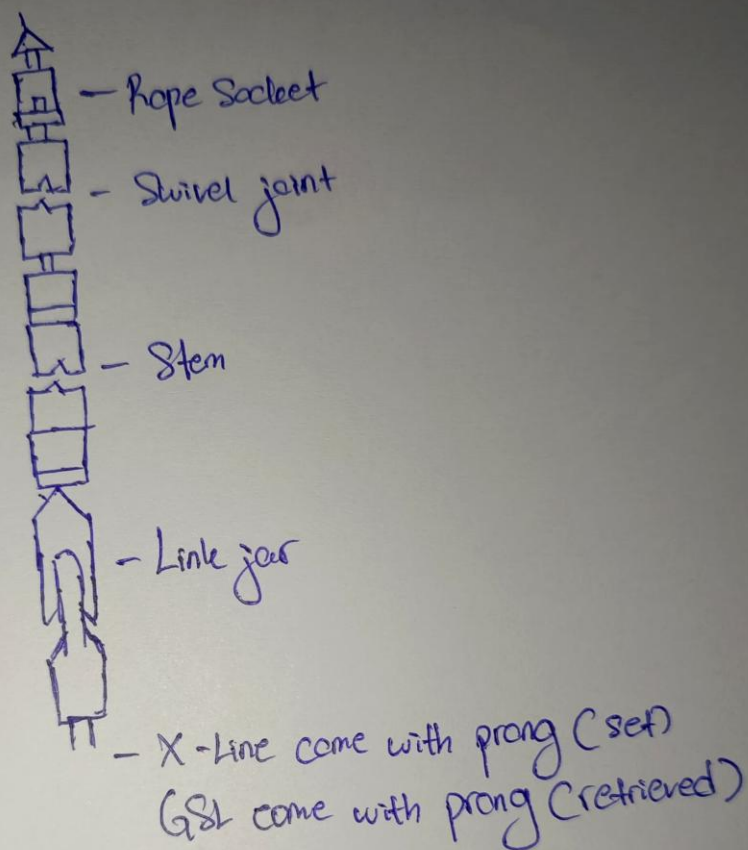 - Rope Socket
- Swivel joint
- Stem
- Link jar
- X-Line come with prong (set)
GSL come with prong (retrieved)